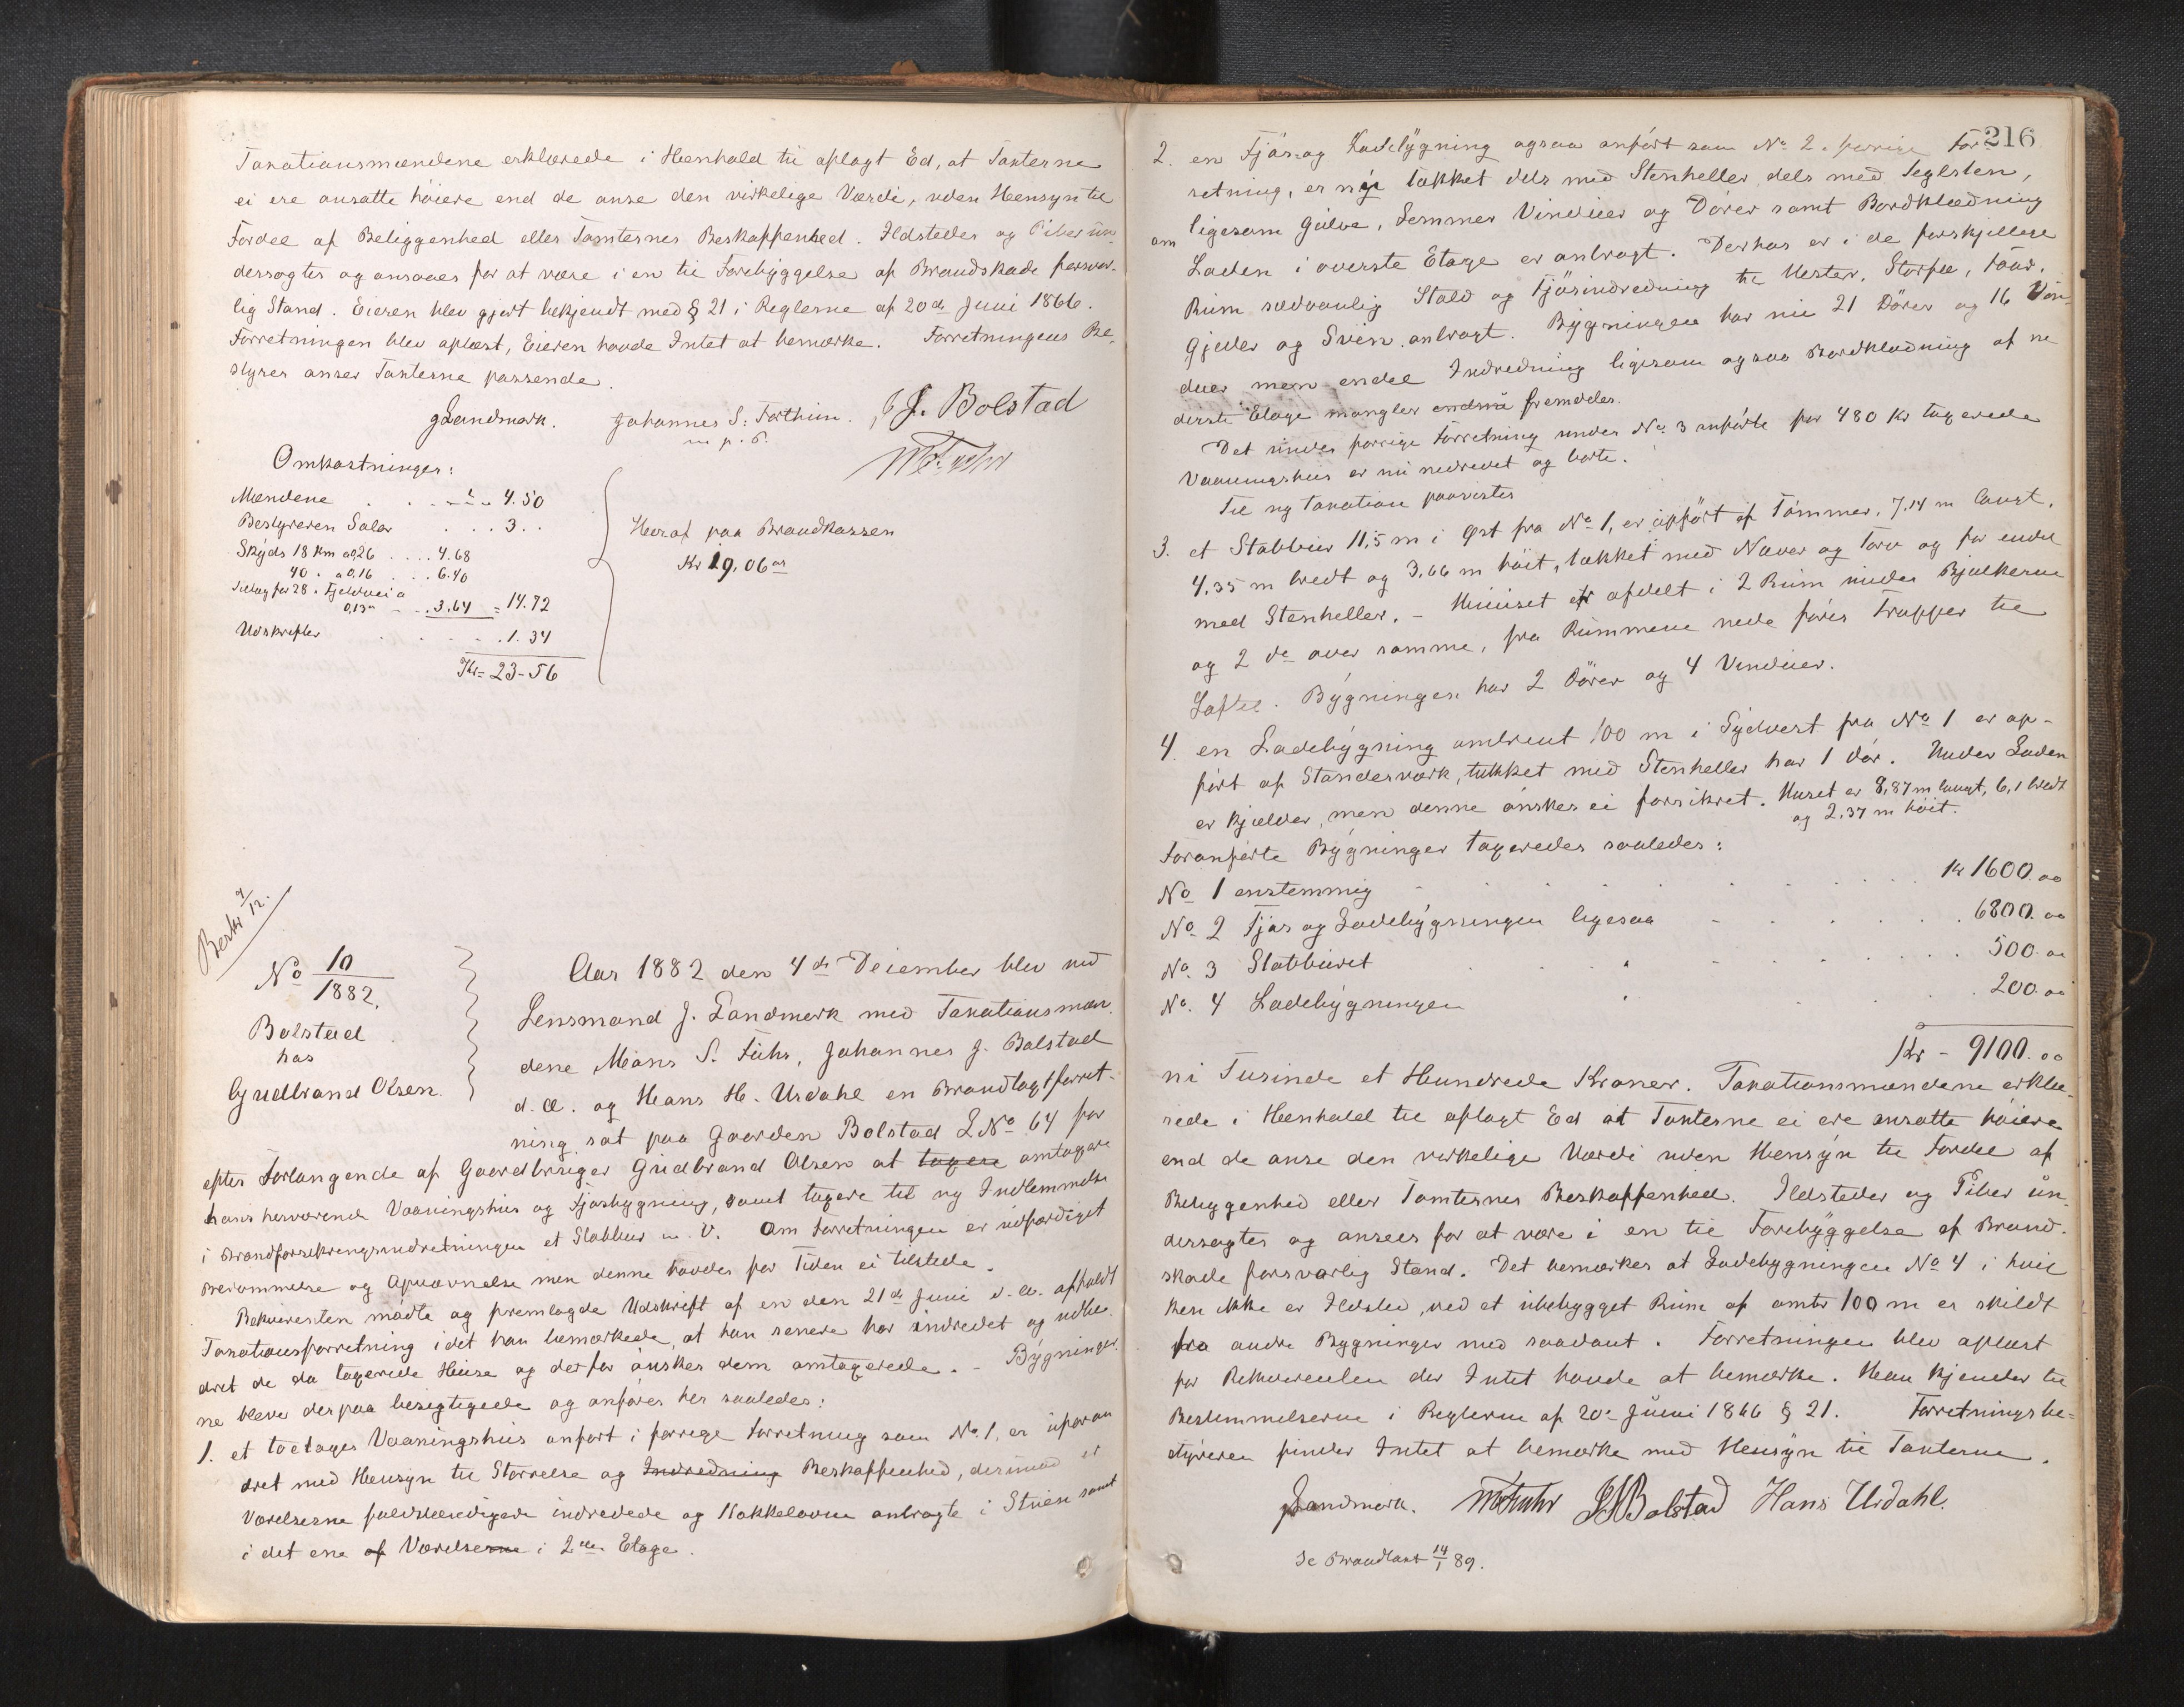 Taxationsmændene erklærede i Henhold til aflagt Ed, at Taxterne
ei ere ansatte höiere end de anse den virkelige Værdi, uden Hensyn til
Fordel af Beliggenhed eller Tomternes Beskaffenhed. Ildsteder og Piber un-
dersøgtes og ansaaes for at være i en til Forebyggelse af Brandskade forsvar-
lig Stand. Eieren blev gjort bekjendt med § 21 i Reglerne af 20de Juni 1866.
Forretningen blev oplæst, Eieren havde Intet at bemærke. Forretningens Be-
styrer anser Taxterne passende.
JLandmark. Johannes S. Forthun. J. Bolstad
m. p. P.
MSFuhr
Omkostninger:
Mændene . . . 4.50
Bestyreren Salær . . . 3. .
Skyds 18 Km a 0,26 . . . 4.68
40 " a 0,16 . . . 6.40
Tillæg for 28 " Fjeldvei a
0,13 - . . 3.64 = 14.72
Udskrifter . . . . . 1.34
Kr = 23-56
Heraf paa Brandkassen
Kr 19,06 ør
Berbr 9/12.
No 10/1882.
Bolstad
hos
Gudbrand Olsen.
Aar 1882 den 4de December blev ved
Lensmand J. Landmark med Taxationsmæn-
dene Måns S. Fuhr, Johannes J. Bolstad
d. æ. og Hans H. Urdahl en Brandtaxtforret-
ning sat paa Gaarden Bolstad L No 64 for
efter Forlangende af Gaardbruger Gudbrand Olsen at taxere omtaxere
hans herværende Vaaningshus og Fjøsbygning, samt taxere til ny Indlemmelse
i Brandforsikringsindretningen et Stabbur m. V. Om Forretningen er udfærdiget
Berammelse og Opnævnelse men denne havdes for Tiden ei tilstede.
Rekvirenten mødte og fremlagde Udskrift af en den 21de Juni d. A. afholdt
Taxationsforretning idet han bemærkede, at han senere har indredet og udbe-
dret de da taxerede Huse og derfor ønskes dem omtaxerede. - Bygninger-
ne bleve derpaa besigtigede og anføres her saaledes:
1. et toetages Vaaningshus anført i forrige Forretning som No 1, er uforan-
dret med Hensyn til Størrelse og Indredning Beskaffenhed, derimod er
Værelserne fuldstændigere indredede og Kakkelovne anbragte i Stuen samt
i det ene af Værelserne i 2den Etage.
216
2. en Fjøs- og Ladebygning ogsaa anført som No 2 i forrige For-
retning, er ny tækket dels med Stenheller dels med Teglsten,
ligesom Gulve, Lemmer Vinduer og Dører samt Bordklædning
om Laden i øverste Etage er anbragt. Derhos er i de forskjellige
Rum sædvanlig Stald og Fjøsindredning til Hester, Storfæ, Faar,
Gjeder og Svin anbragt. Bygningen har nu 21 Dører og 16 Vin-
duer men endel Indredning ligesom ogsaa Bordklædning af ne
derste Etage mangler endnu fremdeles.
Det under forrige Forretning under No 3 anførte for 480 Kr taxerede
Vaaningshus er nu nedrevet og borte.
Til ny Taxation paavistes
3. et Stabbur 11,5 m i Øst fra No 1, er opført af Tømmer, 7,14 m langt,
4,35 m bredt og 3,66 m høit, tækket med Næver og Torv og for endel
med Stenheller. - Huuset er afdelt i 2 Rum under Bjelkerne
og 2 do over samme, fra Rummene nede føres Trapper til
Loftet. Bygningen har 2 Dører og 4 Vinduer.
4. en Ladebygning omtrent 100 m i Sydvest fra No 1 er op-
ført af Standerværk, tækket med Stenheller har 1 dør. Under Laden
er Kjelder, men denne ønskes ei forsikret. Huset er 8,87 m langt, 6,1 bredt
og 2,37 m høit.
Foranførte Bygninger taxeredes saaledes:
No 1 enstemmig . . . . . . Kr 1600.oo
No 2 Fjøs og Ladebygningen ligesaa . . . . . 6800.oo
No. 3 Stabburet . . . . . . 500.oo
No. 4 Ladebygningen . . . 200.oo
Kr - 9100.oo
ni Tusinde et Hundrede Kroner. Taxationsmændene erklæ-
rede i Henhold til aflagt Ed at Taxterne ei ere ansatte høiere
end de anse den virkelige Værdi uden Hensyn til Fordel af
Beliggenhed eller Tomternes Beskaffenhed. Ildsteder og Piber un-
dersøgtes og ansees for at være i en til Forebyggelse af Brand-
skade forsvarlig Stand. Det bemærkes at Ladebygningen No 4 i hvil
ken ikke er Ildsted, ved et ubebygget Rum af omtr 100 m er skildt
fra andre Bygninger med saadant. Forretningen blev oplæst
for Rekvirenten der Intet havde at bemærke. Han kjender til
Bestemmelserne i Reglerne af 20de Juni 1866 § 21. Forretningsbe-
styreren finder Intet at bemærke med Hensyn til Taxterne.
JLandmark. MSFuhr JJBolstad Hans Urdahl.
Se Brandtaxt 14/1 89.